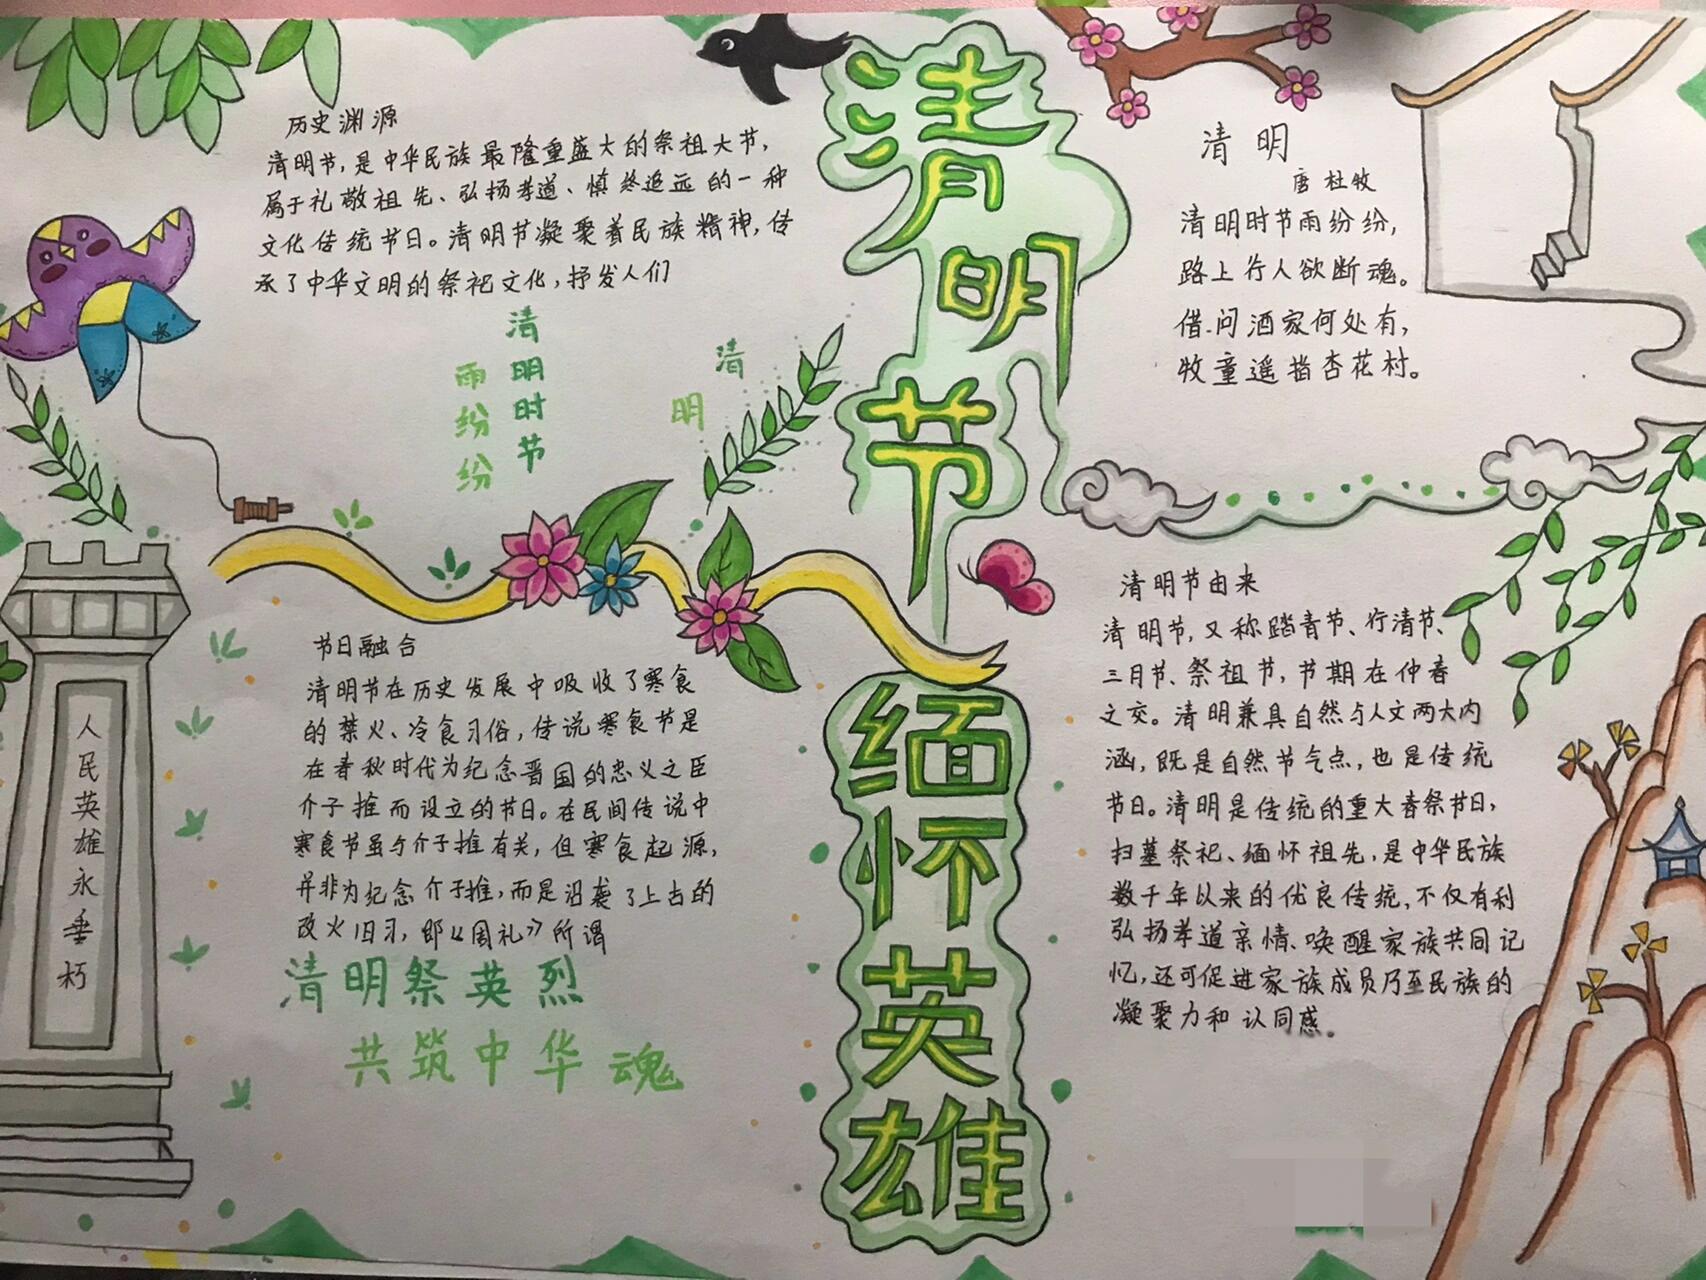 历史渊源
清明节,是中华民族最隆重盛大的祭祖大节,
属于礼敬祖先、弘扬孝道、慎终追远的一种
文化传统节日。清明节凝聚着民族精神,传
承了中华文明的祭祀文化,抒发人们
清明时节
雨纷纷
清
明
清明节
缅怀英雄
清明
唐 杜牧
清明时节雨纷纷,
路上行人欲断魂。
借问酒家何处有,
牧童遥指杏花村。
人民英雄永垂朽
节日融合
清明节在历史发展中吸收了寒食
的禁火、冷食习俗,传说寒食节是
在春秋时代为纪念晋国的忠义之臣
介子推而设立的节日。在民间传说中
寒食节虽与介子推有关,但寒食起源,
并非为纪念介子推,而是沿袭了上古的
改火旧习,即《周礼》所谓
清明祭英烈
共筑中华魂
清明节由来
清明节,又称踏青节、行清节、
三月节、祭祖节,节期在仲春
之交。清明兼具自然与人文两大内
涵,既是自然节气点,也是传统
节日。清明是传统的重大春祭节日,
扫墓祭祀、缅怀祖先,是中华民族
数千年以来的优良传统,不仅有利
弘扬孝道亲情、唤醒家族共同记
忆,还可促进家族成员乃至民族的
凝聚力和认同感。